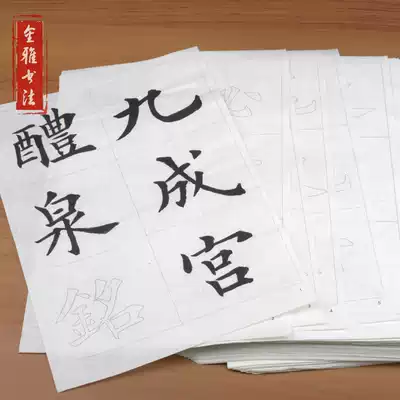 金雅书法
九成宫
醴泉銘